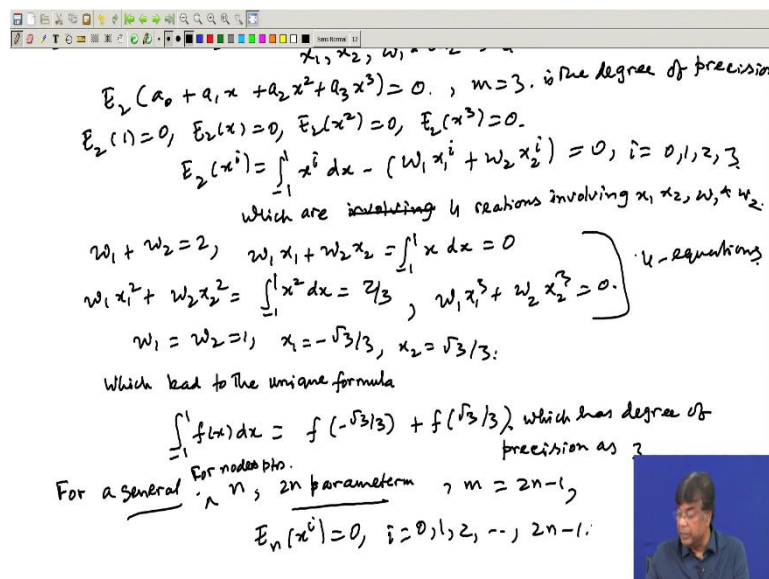 Sans Normal 12
x₁, x₂, w₁
E₂(a₀ + a₁x + a₂x² + a₃x³) = 0. , m = 3. is the degree of precision
E₂(1) = 0, E₂(x) = 0, E₂(x²) = 0, E₂(x³) = 0.
E₂(xⁱ) = ∫₋₁¹ xⁱ dx - (w₁x₁ⁱ + w₂x₂ⁱ) = 0, i = 0, 1, 2, 3
which are involving 4 reations involving x₁ x₂, w₁ & w₂.
w₁ + w₂ = 2, w₁x₁ + w₂x₂ = ∫₋₁¹ x dx = 0
w₁x₁² + w₂x₂² = ∫₋₁¹ x² dx = 2/3 , w₁x₁³ + w₂x₂³ = 0.
4-equations
w₁ = w₂ = 1, x₁ = -√3/3, x₂ = √3/3.
which lead to the unique formula
∫₋₁¹ f(x) dx = f(-√3/3) + f(√3/3). which has degree of
precision as 3
For nodes pts.
For a general n, 2n parameterm , m = 2n-1,
Eₙ(xⁱ) = 0, i = 0, 1, 2, ..., 2n-1.